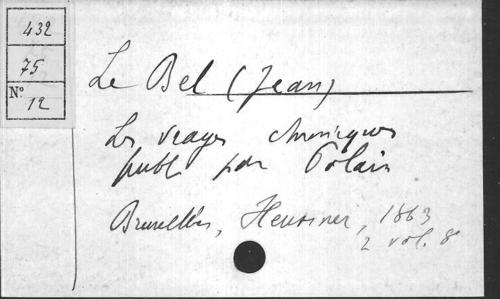 432
75
N° 12
Le Bel (Jean)
Les vrayes chroniques
publ par Polain
Bruxelles, Heussner, 1863
2 vol. 8°